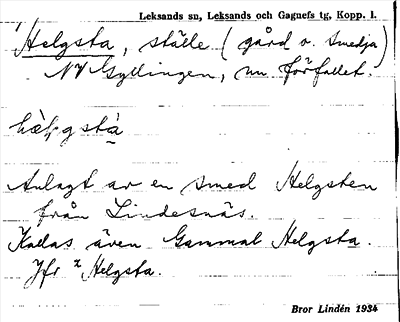 Leksands sn, Leksands och Gagnefs tg, Kopp. l.
Helgsta, ställe (gård o. smedja)
NV Gyllingen, nu förfallet.
Anlagt av en smed Helgsten
från Lindesnäs.
Kallas även Gammal Helgsta.
Jfr ² Helgsta.
Bror Lindén 1934